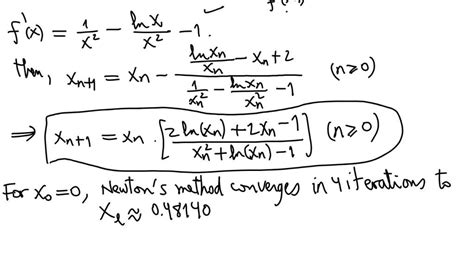 f'(x) = 1/x² - ln x/x² - 1.
then, x_{n+1} = x_n - (ln x_n/x_n - x_n + 2)/(1/x_n² - ln x_n/x_n² - 1) (n ≥ 0)
⇒ x_{n+1} = x_n · [(2 ln(x_n) + 2x_n - 1)/(x_n² + ln(x_n) - 1)] (n ≥ 0)
For x_0 = 0, Newton's method converges in 4 iterations to
x_ℓ ≈ 0.48140